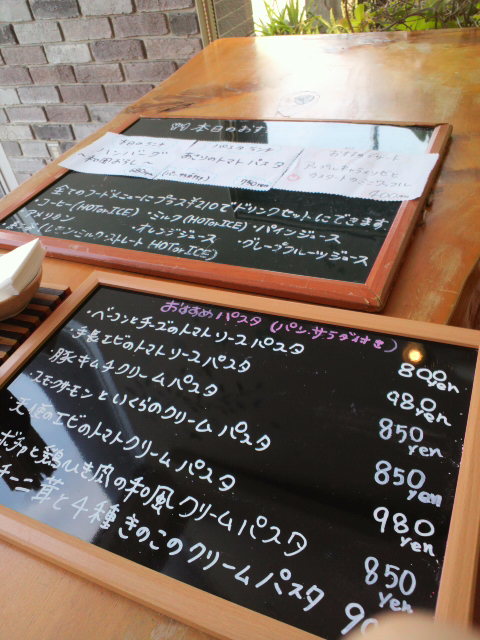 本日のおすすめ
本日のランチ
ハンバーグ
〜和風おろし〜
パスタランチ
あさりのトマトパスタ
全てのフードメニューにプラス¥210でドリンクセットにできます
コーヒー(HOTorICE)・ミルク(HOTorICE)・パインジュース
・オレンジジュース ・グレープフルーツジュース
(レモン・ミルク・ストレート HOTorICE)
おすすめパスタ(パン・サラダ付き)
・ベーコンとチーズのトマトソースパスタ 800yen
・手長エビのトマトソースパスタ 980yen
・豚キムチクリームパスタ 850yen
・スモークサーモンといくらのクリームパスタ 850yen
天使のエビのトマトクリームパスタ 980yen
と鶏ひき肉の和風クリームパスタ 850yen
茸と4種きのこのクリームパスタ